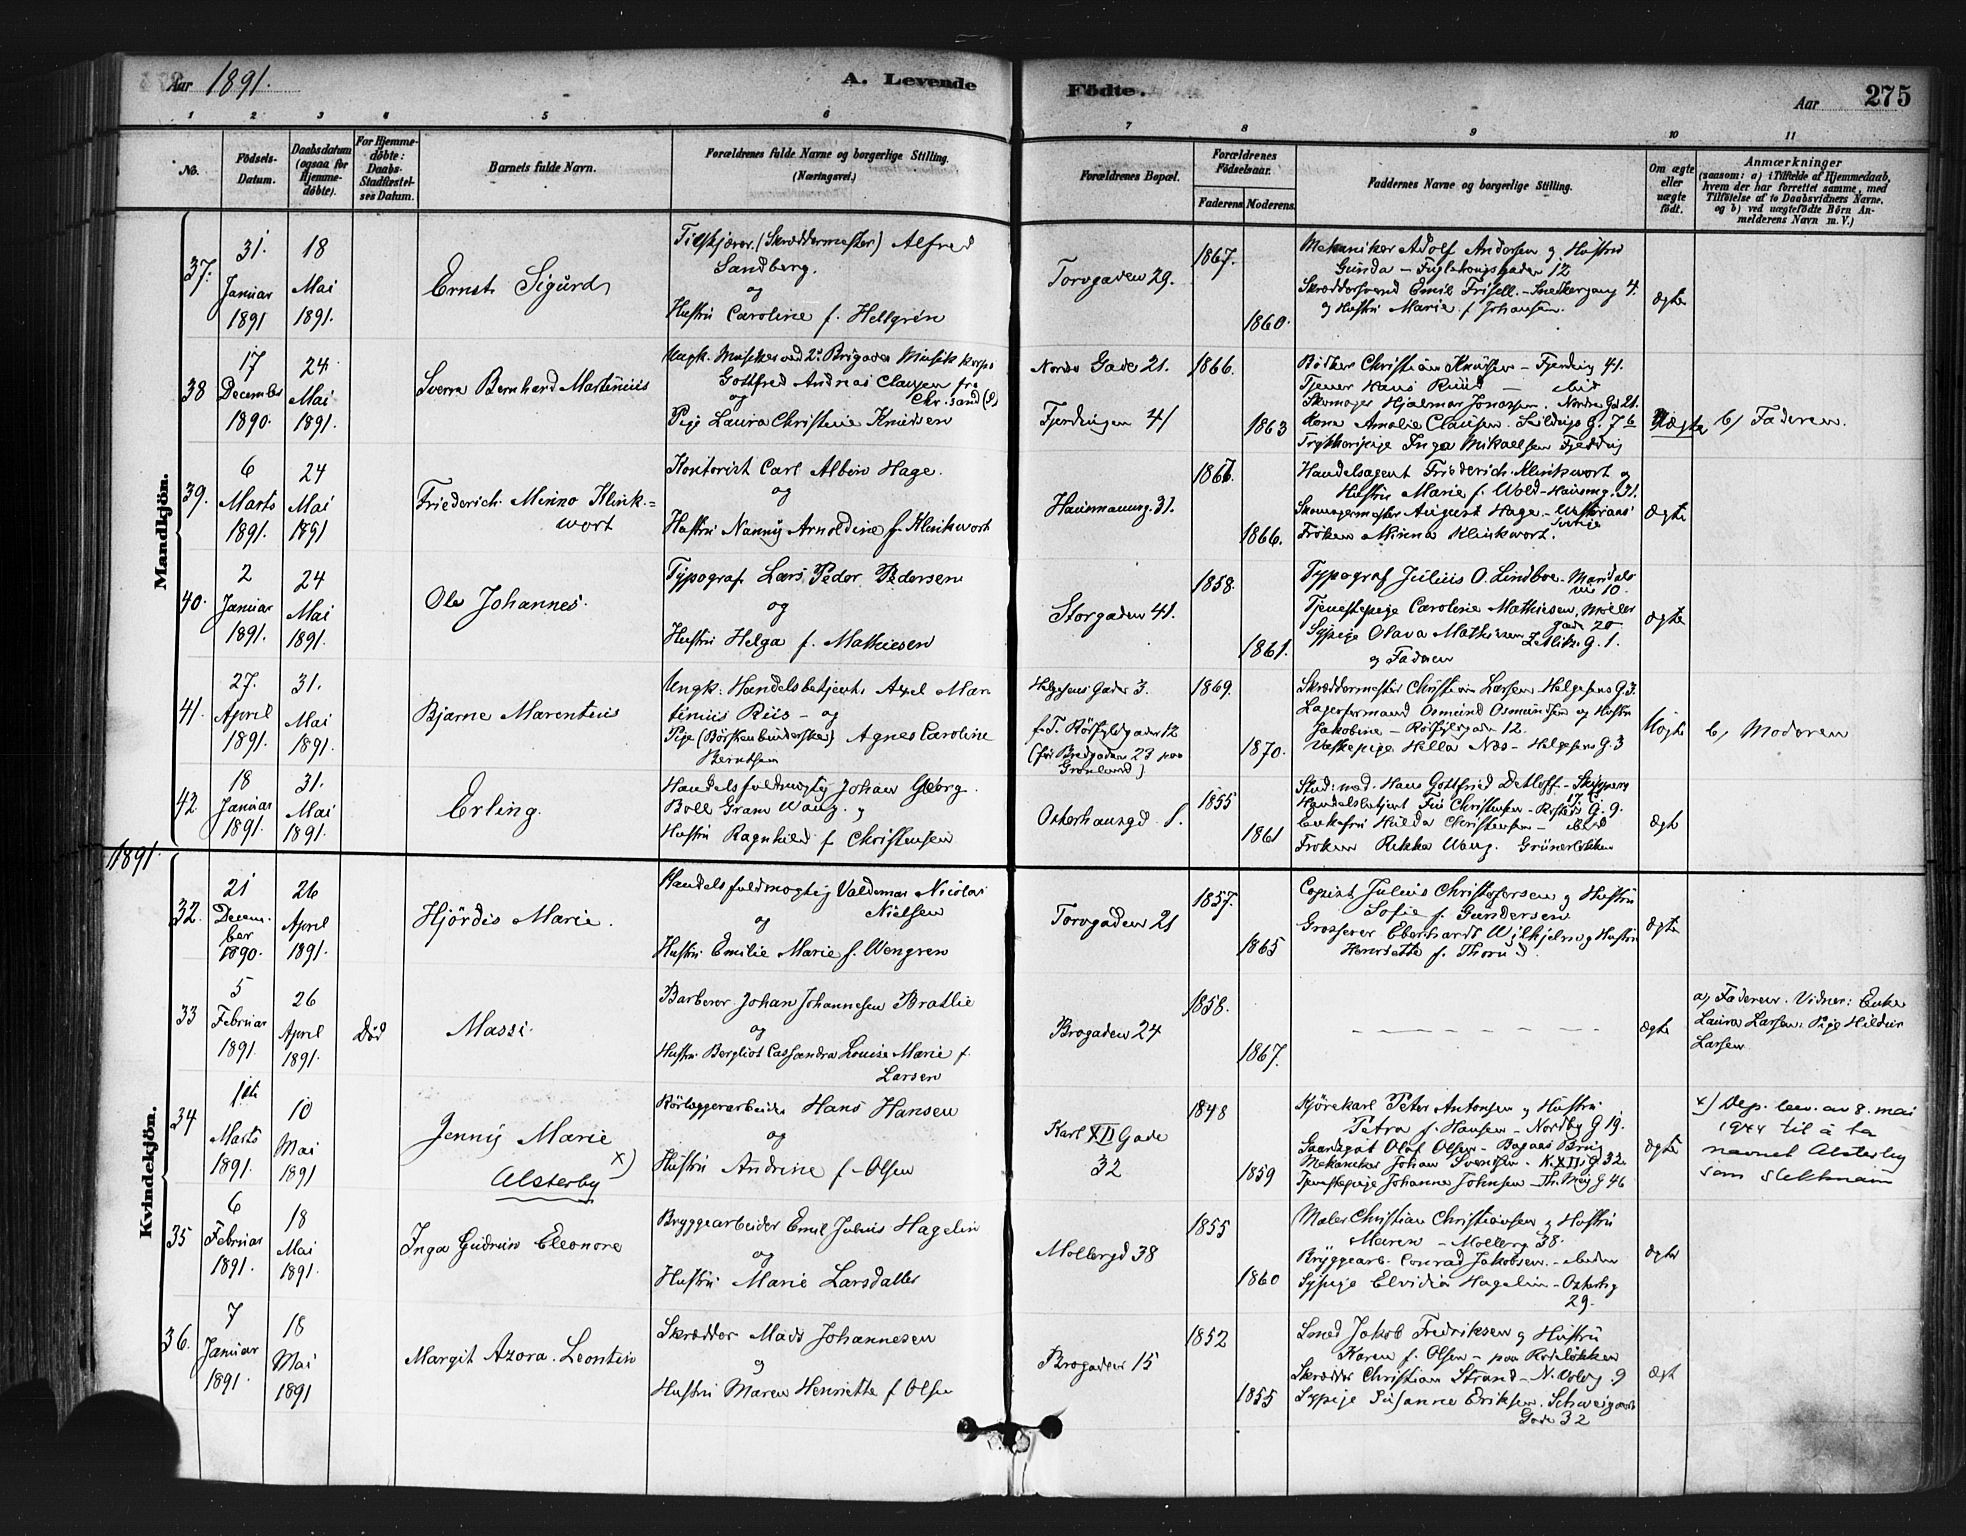 Aar 1891.
A. Levende Födte.
Aar 275
1 2 3 4 5 6 7 8 9 10 11
No.
Födsels-Datum.
Daabsdatum (ogsaa for Hjemmedöbte).
For Hjemmedöbte: Daabs-Stadfæstelses Datum.
Barnets fulde Navn.
Forældrenes fulde Navne og borgerlige Stilling. (Næringsvei.)
Forældrenes Bopæl.
Forældrenes Födselsaar.
Faderens. Moderens.
Faddernes Navne og borgerlige Stilling.
Om ægte eller uægte födt.
Anmærkninger
(saasom: a) i Tilfælde af Hjemmedaab, hvem der har forrettet samme, med Tilföielse af to Daabsvidners Navne. og b) ved uægtefödte Börn Anmelderens Navn m. V.)
Mandkjön.
37.
31. Januar 1891
18 Mai 1891.
Ernst Sigurd
Tilskjærer (Skræddermester) Alfred
Sandberg.
og
Hustru Caroline f. Hellgrén
Torvgaden 29.
1867.
1860.
Mekaniker Adolf Andersen og Hustru
Gunda – Fuglehaugsgaden 12
Skræddersvend Emil Frisell. – Snekkergang 4.
og Hustru Marie f. Johansen.
ægte
38
17 December 1890.
24 Mai 1891.
Sverre Bernhard Martinius
Ungk. Musiker ved 2den Brigades Musikkorps
Gottfred Andreas Clausen fra
og Chr.sand (S)
Pige Laura Christine Knudsen
Nordre Gade 21.
Fjerdingen 41
1866.
1863
Bödker Christian Knudsen – Fjerding 41.
Tjener Hans Ruud – ibid
Skomager Hjalmar Jonassen. Nordre Gd 21.
Kone Amalie Clausen.
Inga Mikaelsen Fjerding
Uægte
b) Faderen.
39.
6 Marts 1891.
24 Mai 1891
Friederich Minno Klinkwort
Kontorist Carl Albin Hage.
og
Hustru Nanny Arnoldine f. Klinkwort
Hausmannsg. 31.
1866.
1866.
Handelsagent Friederich Klinkwort og
Hustru Marie f. Wold – Hausmg. 31.
Skomagermester August Hage –
Fröken Minna Klinkwort.
ægte
40.
2 Januar 1891.
24 Mai 1891.
Ole Johannes.
Typograf Lars Peder Pedersen
og
Hustru Helga f. Mathiesen
Storgaden 41.
1858.
1861.
Typograf Julius O. Lindboe – Maridalsvei 10.
Tjenestepige Caroline Mathiesen, Möllergade 20
Sypige Olava Mathiesen Zetlitz G. 1.
og Faderen
ægte
41.
27. April 1891.
31. Mai 1891.
Bjarne Marentius
Ungk. Handelsbetjent Axel Martinius Riis – og
Pige (Börstenbinderske) Agnes Caroline
Berntsen
Helgesens Gade 3.
f. T. Rörfyldgaden 12
(för Bredgaden 23 paa
Grönland)
1869.
1870.
Skræddermester Christian Larsen Helgesens G 3.
Lagerformand Osmund Osmundsen og Hustru
Jakobine –
Vaskepige Hella Næs – Helgesens G. 3
Uægte
b) Moderen
42.
18 Januar 1891.
31. Mai 1891.
Erling.
Handelsfuldmægtig Johan Georg
Boll Gram Wang. og
Hustru Ragnhild f Christensen
Osterhausgd 8.
1855
1861
Stud. med. Hans Gottfried Detloff –
Handelsbetjent Christensen –
Enkefru Hilda Christensen – ibid
Fröken Rikka Wang. Grünerlökken
ægte
1891.
Kvindekjön.
32.
21 December 1890.
26 April 1891.
Hjördis Marie.
Handelsfuldmægtig Valdemar Nicolai
Nielsen
og
Hustru Emilie Marie f. Wengren
Torvgaden 21
1857.
1865
Copist Julius Christofersen og Hustru
Sofie f. Gundersen
Grosserer Eberhardt Wilhjelm og Hustru
Henriette f. Thorud.
ægte
33
5 Februar 1891.
26 April 1891.
Död
Massi.
Barberer Johan Johannesen Bratlie
og
Hustru Bergliot Cassandra Louise Marie f.
Larsen
Brogaden 24
1858.
1867.
ægte
a) Faderen. Vidner: Enke
Laura Larsen. Pige Hildur
Larsen
34
1ste Marts 1891.
10 Mai 1891
Jenny Marie
Alsterby x)
Rörlæggerarbeider Hans Hansen
og
Hustru Andrine f. Olsen
Karl XII Gade
32
1848
1859
Kjörekarl Peter Antonsen og Hustru
Petra f. Hansen – Nordby G 19.
Gaardsgut Olaf Olsen –
Mekaniker Johan Svendsen – K. XII. G 32
Tjenestepige Johanne Johnsen – Th. Mey G 46
ægte
x) Dep. bev. av 8. mai
1944 til å ta
navnet Alsterby
som slektsnavn
35
6 Februar 1891.
18 Mai 1891.
Inga Gudrun Eleonore
Bryggearbeider Emil Julius Hagelin
og
Hustru Marie Larsdatter
Mollergd 38
1855
1860
Maler Christian Christiansen og Hustru
Maren – Mollerg 38.
Bryggearb. Conrad Jakobsen. – ibidem
Sypige Elvidia Hagelin – Osterby
29.
ægte
36.
7 Januar 1891.
18 Mai 1891
Margit Azora Leontin
Skrædder Mads Johannesen
og
Hustru Maren Henriette f Olsen
Brogaden 15
1852
1855
Smed Jakob Fredriksen og Hustru
Karen f. Olsen – paa Rodelökken
Skrædder Christian Strand –
Sypige Susanne Eriksen. Schweigaards
Gade 32
ægt